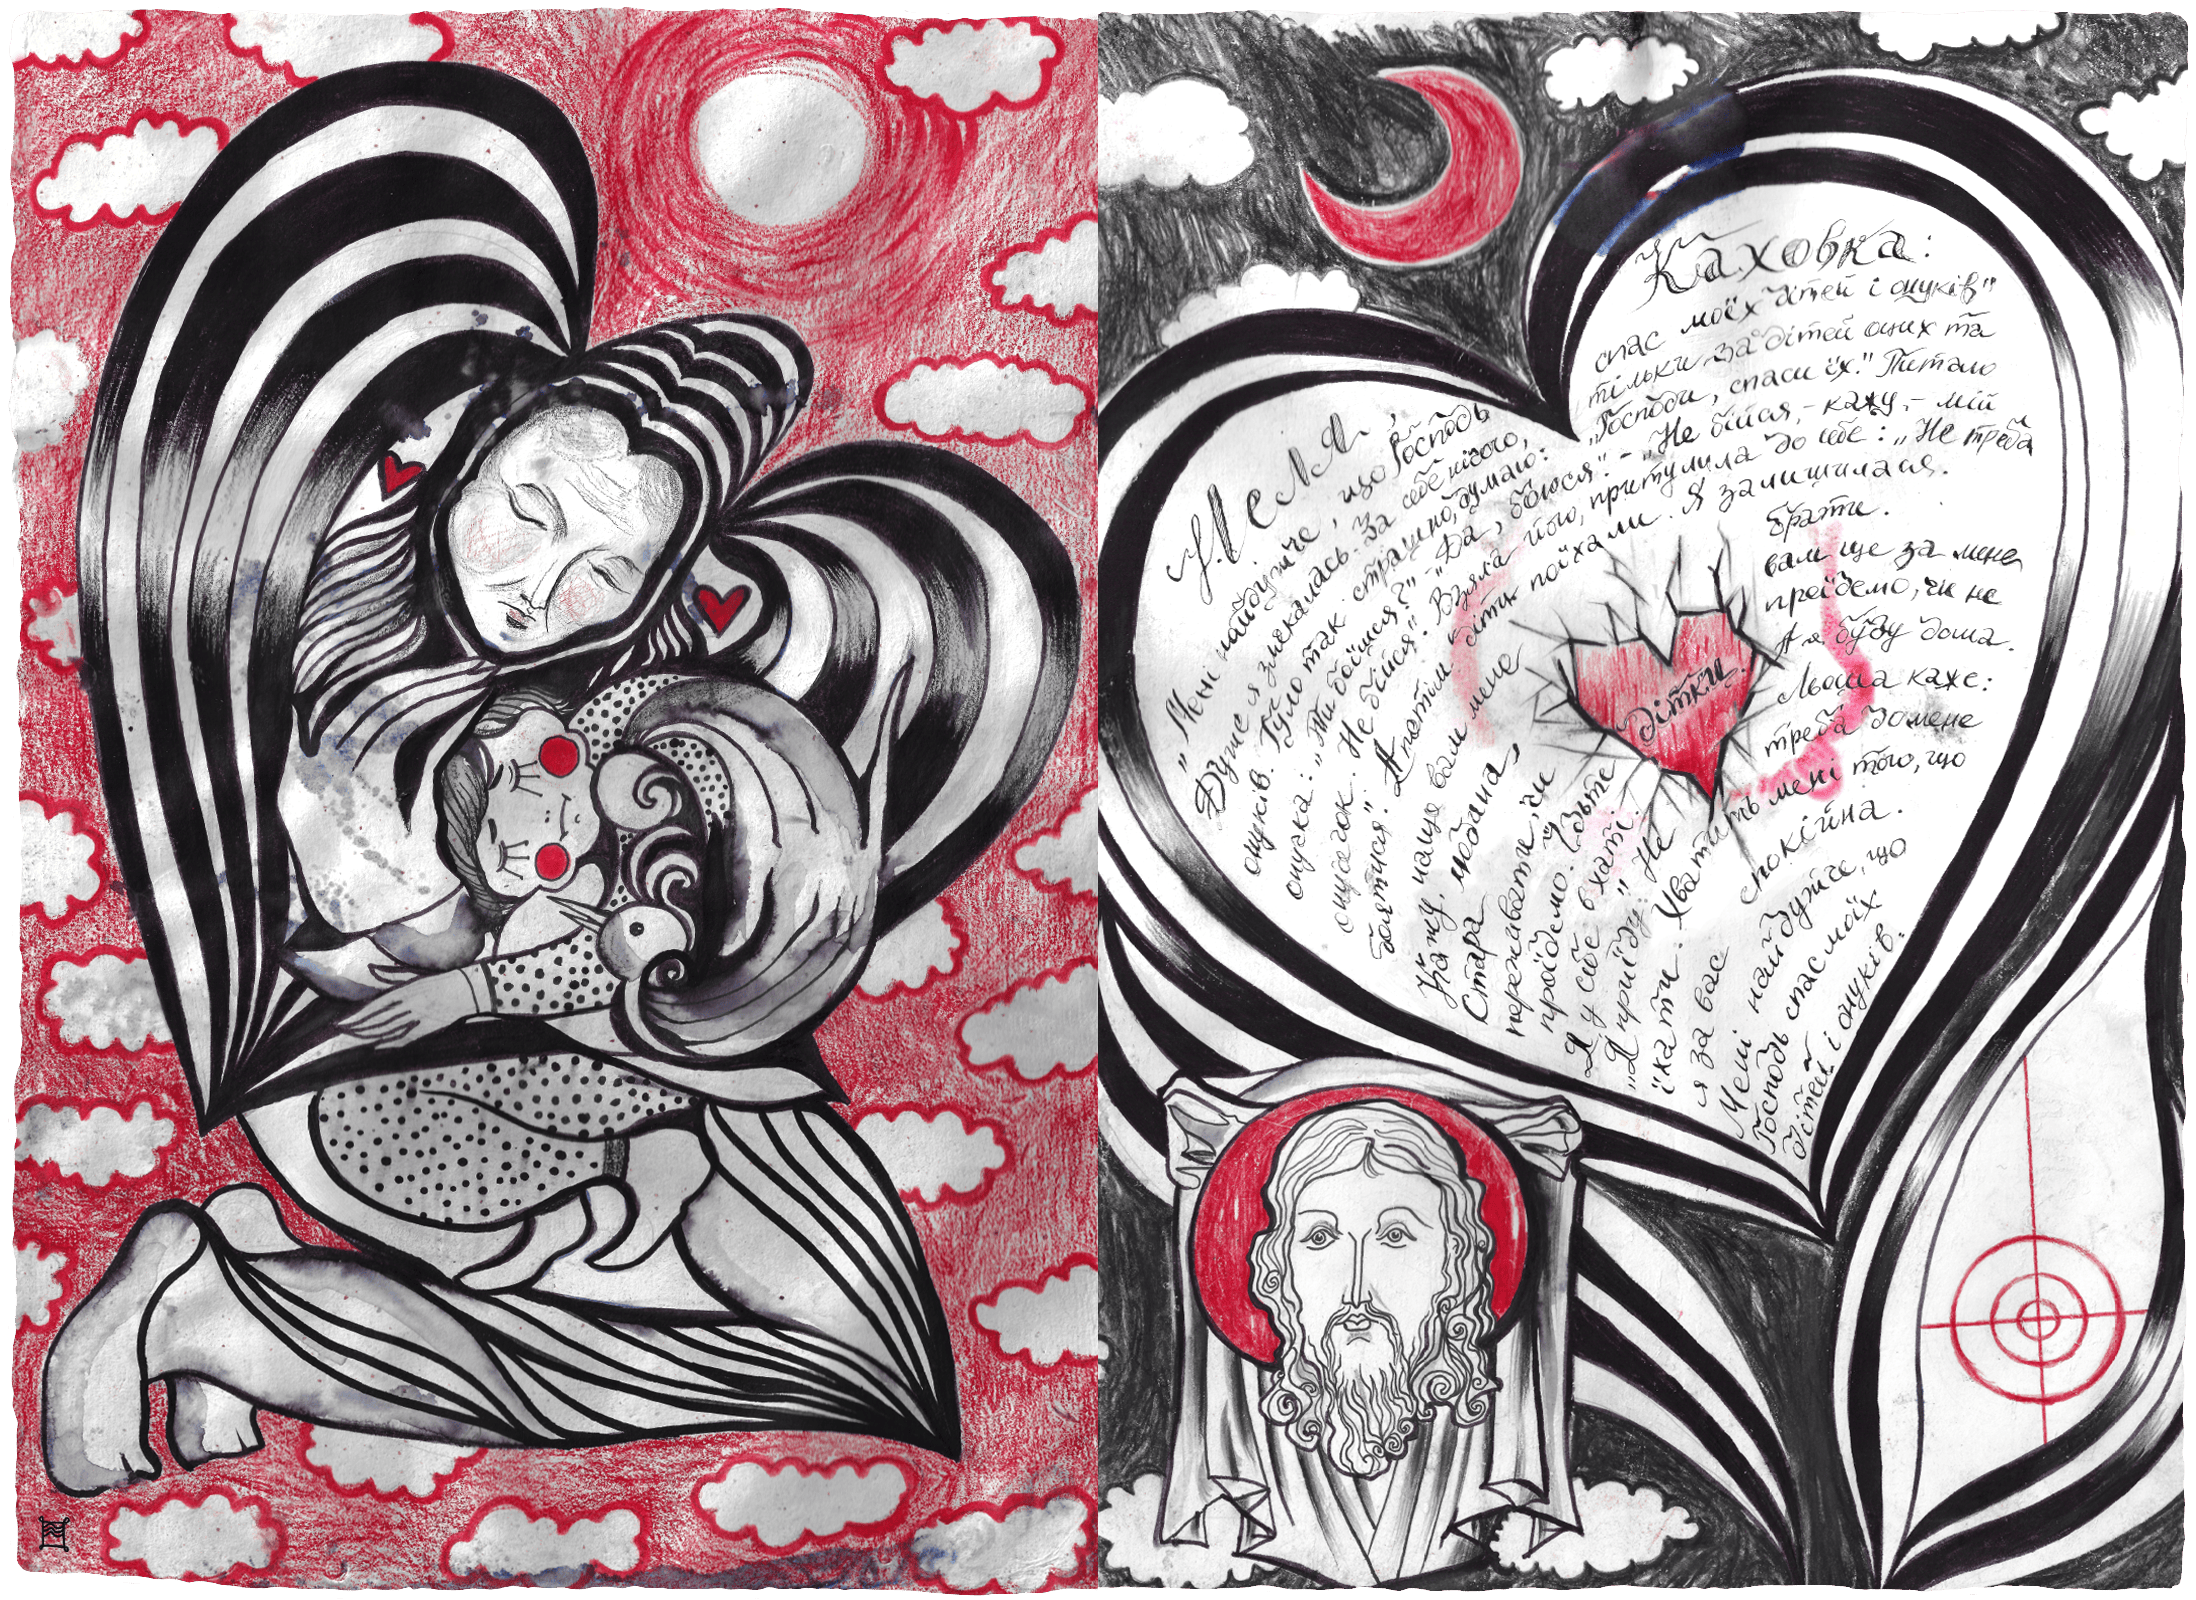 Неля, Каховка:
„Мені найдужче, що Господь спас моїх дітей і онуків"
Дуже я злякалась. За себе нічого, тільки за дітей оцих та
онуків. Було так страшно, думаю: „Господи, спаси їх." Питало
онучка: „Ти боїшся?" - „Да, боюся". - „Не бійся, - кажу, - мій
онучок. Не бійся". Взяла його, притулила до себе: „Не треба
боятися". А потім дітки поїхали. Я залишилася.
Кажу, нащо вам мене брати.
Стара людина, вам ще за мене
переживати, чи проїдемо, чи не
проїдемо. Їдьте. А я буду дома.
Я у себе в хаті." Льоша каже:
„Я приїду." Не треба до мене
їхати. Хватить мені того, що
я за вас спокійна.
Мені найдужче, що
Господь спас моїх
дітей і онуків.
дітки.